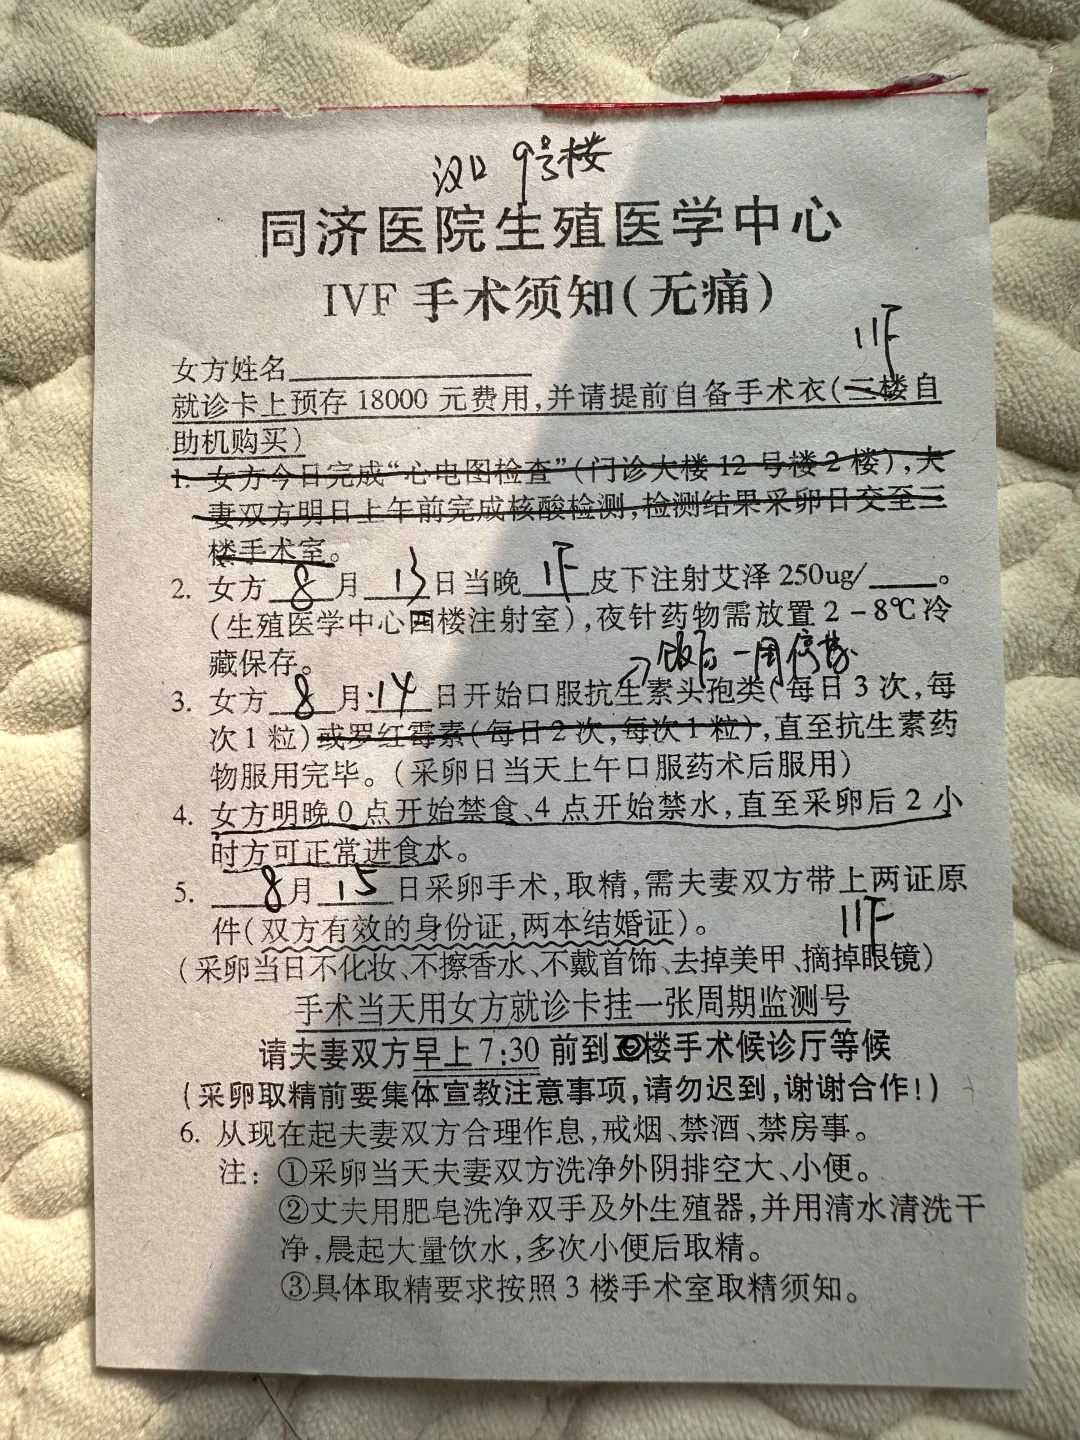 汉口 9号楼
同济医院生殖医学中心
IVF 手术须知(无痛)
11F
女方姓名
就诊卡上预存 18000 元费用,并请提前自备手术衣(三楼自
助机购买)
1. 女方今日完成“心电图检查”(门诊大楼 12 号楼 2 楼),夫
妻双方明日上午前完成核酸检测,检测结果采卵日交至三
楼手术室。
2. 女方 8 月 13 日当晚 1F 皮下注射艾泽 250ug/____。
(生殖医学中心四楼注射室),夜针药物需放置 2-8℃冷
藏保存。
→饭后一周停药
3. 女方 8 月 14 日开始口服抗生素头孢类(每日 3 次,每
次 1 粒)或罗红霉素(每日 2 次,每次 1 粒),直至抗生素药
物服用完毕。(采卵日当天上午口服药术后服用)
4. 女方明晚 0 点开始禁食、4 点开始禁水,直至采卵后 2 小
时方可正常进食水。
5. 8 月 15 日采卵手术,取精,需夫妻双方带上两证原
件(双方有效的身份证,两本结婚证)。
11F
(采卵当日不化妆、不擦香水、不戴首饰、去掉美甲、摘掉眼镜)
手术当天用女方就诊卡挂一张周期监测号
请夫妻双方早上 7:30 前到楼手术候诊厅等候
(采卵取精前要集体宣教注意事项,请勿迟到,谢谢合作!)
6. 从现在起夫妻双方合理作息,戒烟、禁酒、禁房事。
注: ①采卵当天夫妻双方洗净外阴排空大、小便。
②丈夫用肥皂洗净双手及外生殖器,并用清水清洗干
净,晨起大量饮水,多次小便后取精。
③具体取精要求按照 3 楼手术室取精须知。